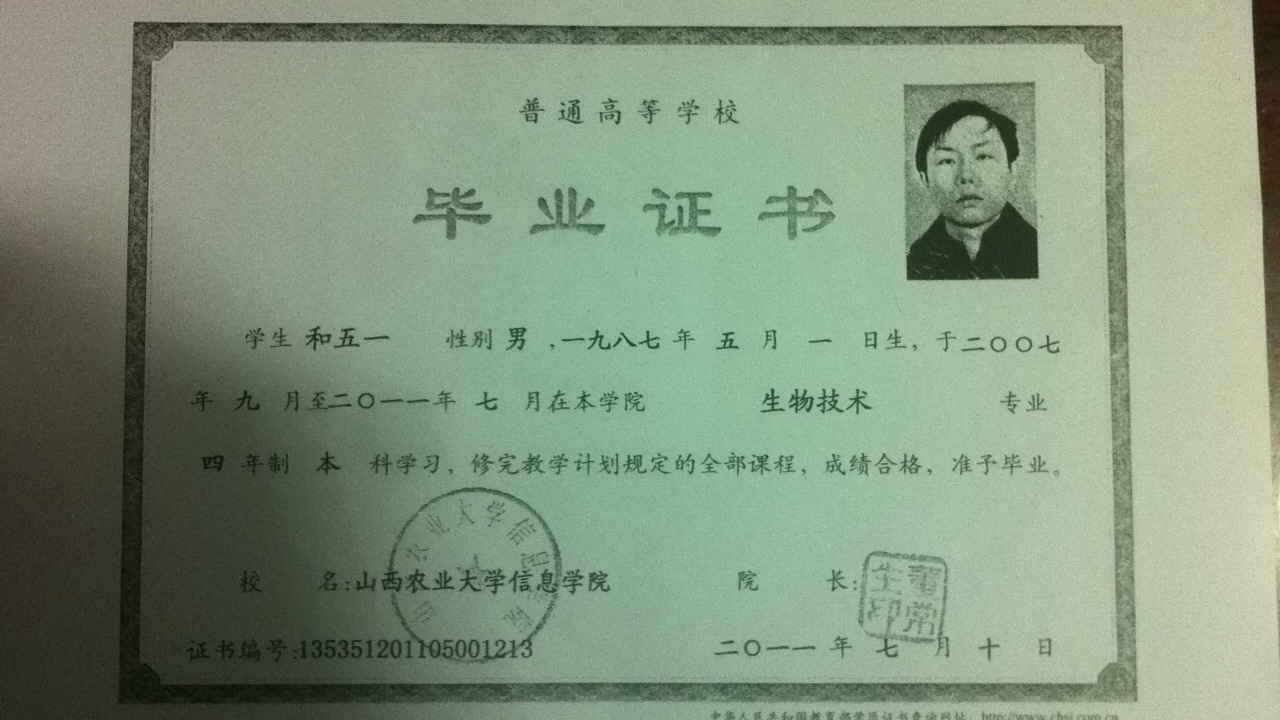 普通高等学校
毕业证书
学生 和五一 性别 男 ,一九八七 年 五 月 一 日生, 于二〇〇七
年 九 月至二〇一一年 七 月在本学院 生物技术 专业
四 年制 本 科学习, 修完教学计划规定的全部课程, 成绩合格, 准予毕业。
校 名:山西农业大学信息学院 院 长:
农业大学信息学院
董常生印
证书编号:135351201105001213 二〇一一 年 七 月 十 日
中华人民共和国教育部学历证书查询网址: http://www.chsi.com.cn